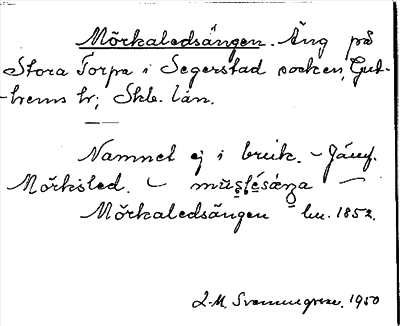 Mörkaledsängen. Äng på
Stora Torpa i Segerstad socken, Gut-
hems hr; Skb. län.
Namnet ej i bruk. – Jämf.
Mörksled. –
Mörkaledsängen lm. 1852.
L-M. Svenungsson. 1950